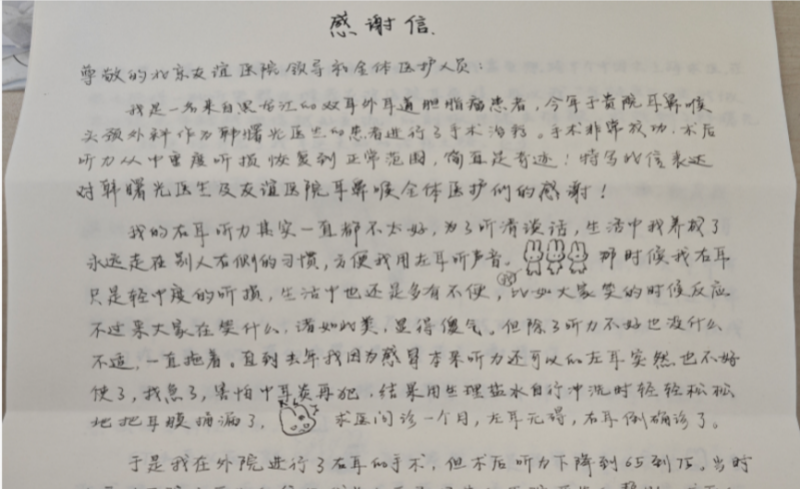 感谢信.
尊敬的北京友谊医院领导和全体医护人员：
我是一名来自黑龙江的双耳外耳道胆脂瘤患者，今年于贵院耳鼻喉
头颈外科作为韩曙光医生的患者进行了手术治疗。手术非常成功，术后
听力从中重度听损恢复到正常范围，简直是奇迹！特写此信表达
对韩曙光医生及友谊医院耳鼻喉全体医护们的感谢！
我的右耳听力其实一直都不太好，为了听清谈话，生活中我养成了
永远走在别人右侧的习惯，方便我用左耳听声音。那时候我右耳
只是轻中度的听损，生活中也还是多有不便，比如大家笑的时候反应
不过来大家在笑什么，诸如此类，显得傻气。但除了听力不好也没什么
不适，一直拖着。直到去年我因为感冒本来听力还可以的左耳突然也不好
使了，我急了，害怕中耳炎再犯，结果用生理盐水自行冲洗时轻轻松松
地把耳膜捅漏了，求医问诊一个月，左耳无碍，右耳倒确诊了。
于是我在外院进行了右耳的手术，但术后听力下降到65到75，当时